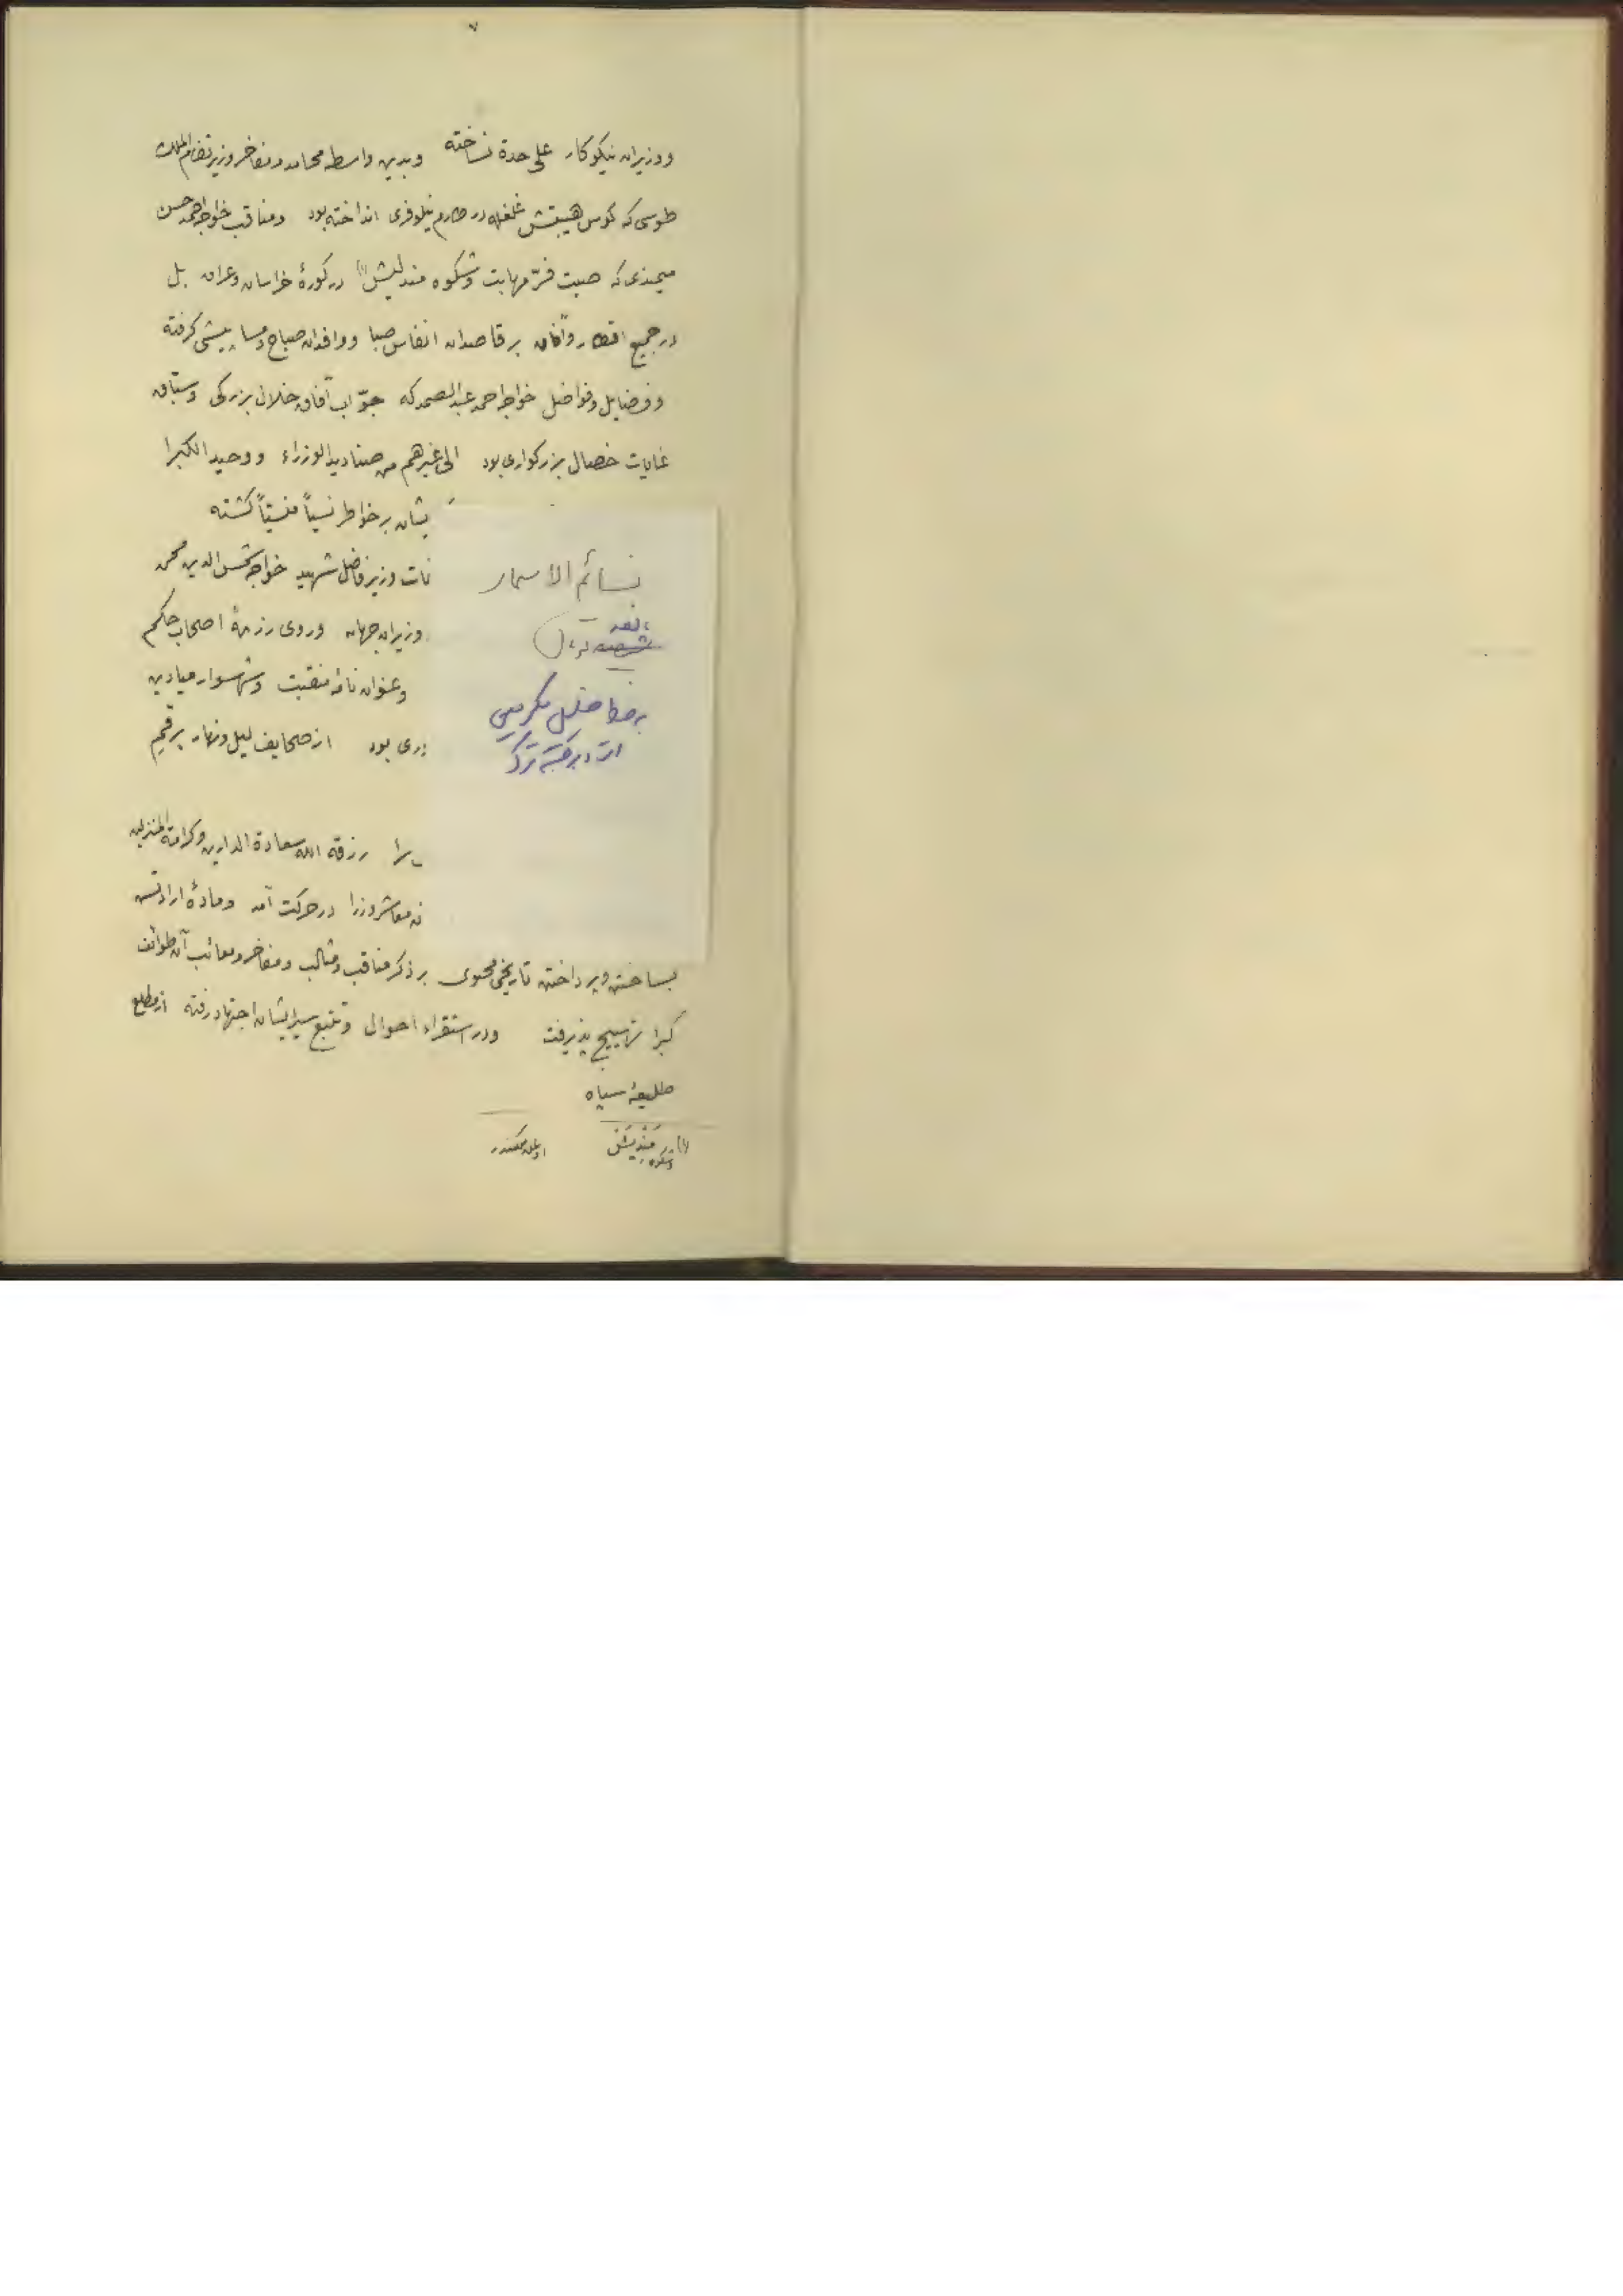 ۷
ووزیران نیکوکار علی حدة نساخته وبدین واسطه محامد ومفاخر وزیر نظام الملک
طوسی که کوس هیبتش غلغله در طارم نیلوفری انداخته بود ومناقب خواجه احمد حسن
میمندی که صیت فرّ مهابت وشکوه مندیلش (۱) در کورۀ خراسان وعراق بل
در جمیع اقطار وآفاق بر قاصدان انفاس صبا ووافدان صباح ومسا پیشی گرفته
وفضایل وفواضل خواجه احمد عبد الصمد که جوّاب آفاق خلال بزرگی وسبّاق
غایات خصال بزرگواری بود الی غیرهم من صنادید الوزراء ووحید الکبرا
یشان بر خواطر نسیاً منسیّاً گشته
نات وزیر فاضل شهید خواجه شمس الدین محمد
وزیران جهان وروی رزمۀ اصحاب حکم
وعنوان نامۀ منقبت وشهسوار میادین
دری بود از صحایف لیل ونهار برقیم
را رزقه الله سعادة الدارین وکرامة المنزلین
نه معاشر وزرا در حرکت آمد ومادۀ ارادتش
بساختن وپرداختن تاریخی محتوی بر ذکر مناقب ومثالب ومفاخر ومعائب آن طوائف
کبرا تهییج پذیرفت ودر استقراء احوال وتتبع سیر ایشان اجتهاد رفته از مطلع
طلیعۀ سپاه
(۱) مندیش
وشکوه
نسائم الاسحار
بخط